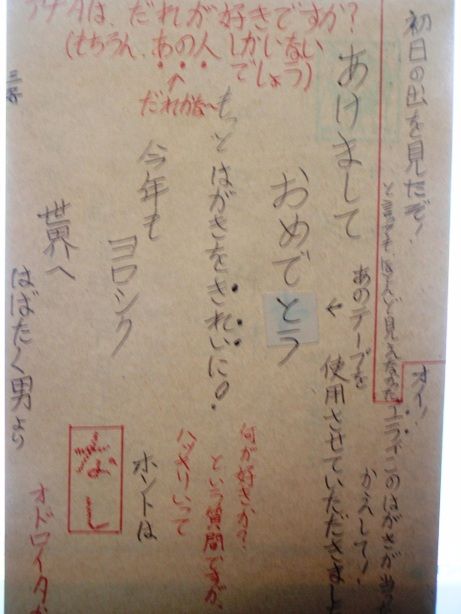 初日の出を見たぞ!
と言っても、ほとんど見えなかった
オイッ!
エライ!このはがきが当
かえして!
あのテープを
使用させていただきまし
あけまして
おめでとう
もっとはがきをきれいに。
今年も
ヨロシク
世界へ
はばたく男より
アナAは、だれが好きですか?
(もちろん、あの人しかいない
でしょう)
だれかな〜
何が好きか?
という質問ですが、
ハッキリいって
ホントは
なし
オドロイタか